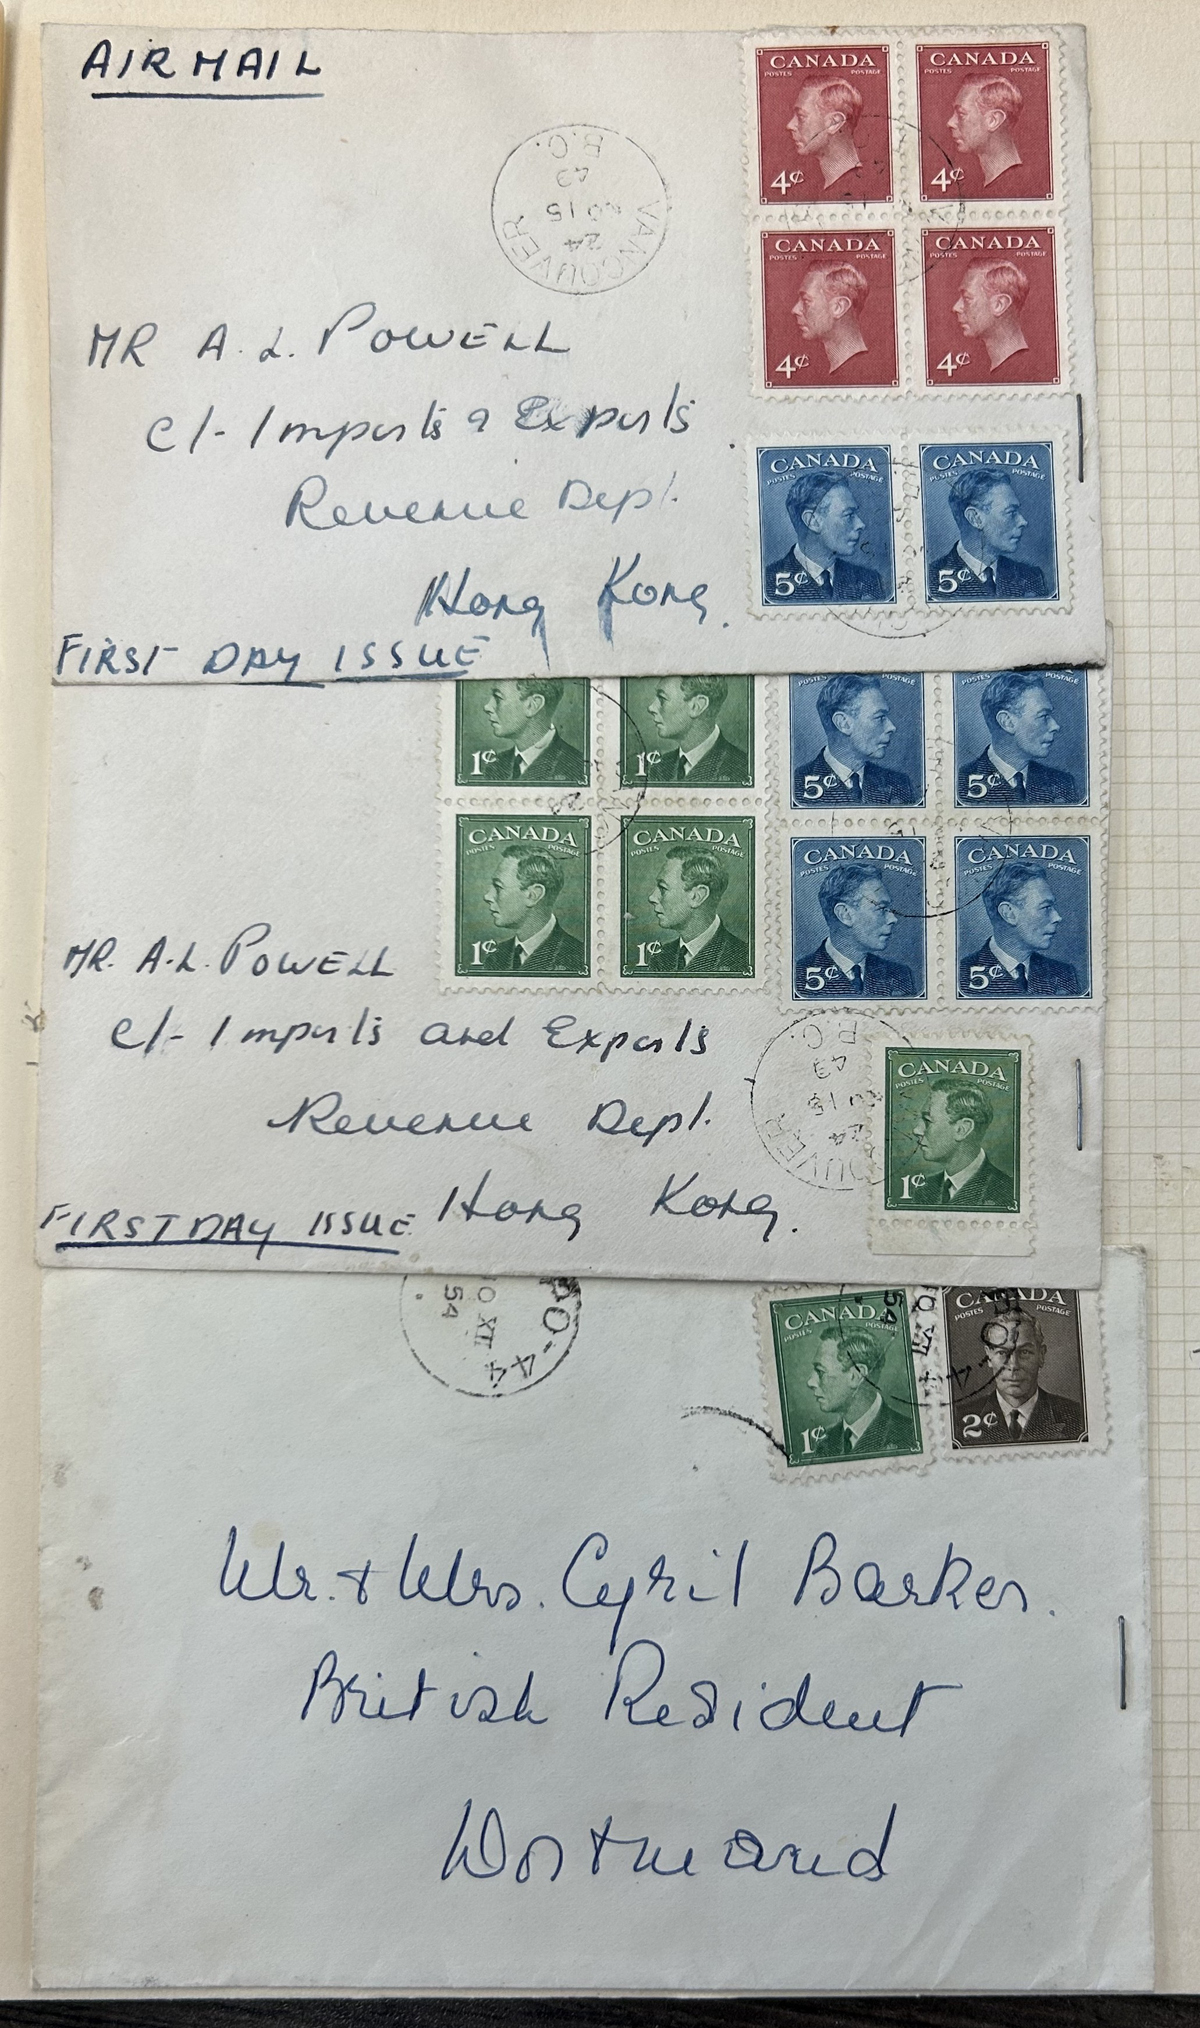 AIR MAIL
CANADA CANADA
POSTES POSTAGE POSTES POSTAGE
4¢ 4¢
CANADA CANADA
POSTES POSTAGE POSTES POSTAGE
4¢ 4¢
VANCOUVER
24
AU 15
49
B.C.
MR A. L. POWELL
C/- Imports & Exports
Revenue Dept.
Hong Kong.
CANADA CANADA
POSTES POSTAGE POSTES POSTAGE
5¢ 5¢
FIRST DAY ISSUE
POSTES POSTAGE POSTES POSTAGE
1¢ 1¢ 5¢ 5¢
CANADA CANADA CANADA CANADA
POSTES POSTAGE POSTES POSTAGE POSTES POSTAGE POSTES POSTAGE
1¢ 1¢ 5¢ 5¢
MR. A.L. POWELL
C/- Imports and Exports
Revenue Dept.
Hong Kong.
24
AU 15
49
B.C.
CANADA
POSTES POSTAGE
1¢
FIRST DAY ISSUE
XII
54
CANADA CANADA
POSTES POSTAGE POSTES POSTAGE
1¢ 2¢
Mr. & Mrs. Cyril Barker.
British Resident